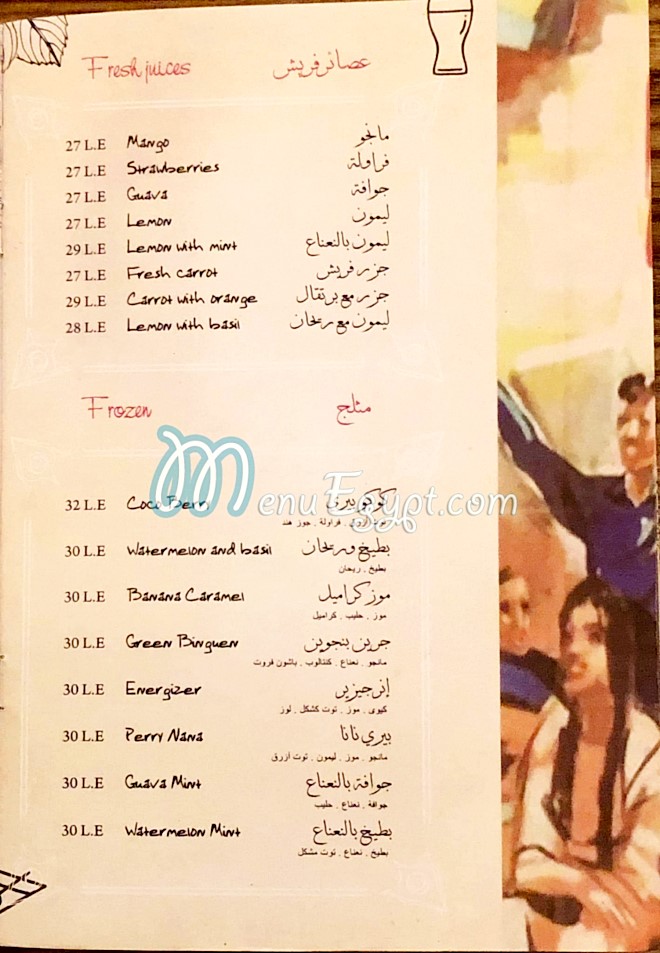 Fresh juices عصائر فريش
27 L.E Mango مانجو
27 L.E Strawberries فراولة
27 L.E Guava جوافة
27 L.E Lemon ليمون
29 L.E Lemon with mint ليمون بالنعناع
27 L.E Fresh carrot جزر فريش
29 L.E Carrot with orange جزر مع برتقال
28 L.E Lemon with basil ليمون مع ريحان
Frozen مثلج
MenuEgypt.com
32 L.E Coco Berri كوكو بيري
توت أزرق . فراولة . جوز هند
30 L.E Watermelon and basil بطيخ وريحان
بطيخ . ريحان
30 L.E Banana Caramel موز كراميل
موز . حليب . كراميل
30 L.E Green Binguen جرين بنجوين
مانجو . نعناع . كنتالوب . باشون فروت
30 L.E Energizer إنرجيزير
كيوى . موز . توت كشكل . لوز
30 L.E Perry Nana بيري نانا
مانجو . موز . ليمون . توت أزرق
30 L.E Guava Mint جوافة بالنعناع
جوافة . نعناع . حليب
30 L.E Watermelon Mint بطيخ بالنعناع
بطيخ . نعناع . توت مشكل